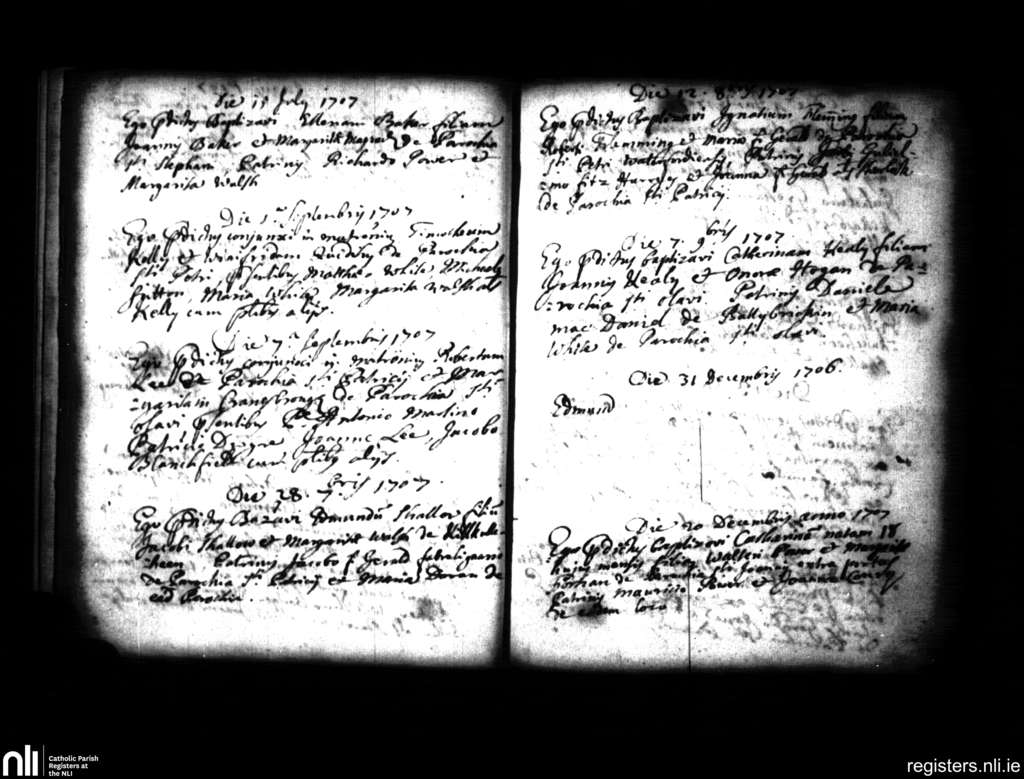 Die 15 July 1707
Ego Pdictus Baptizavi Ellenam Baker filiam
Joannis Baker et Margaritæ de Parochia
sti Stephani Patrinis Richardo Power et
Margarita Walsh
Die 1a Septembris 1707
Ego Pdictus conjunxi in matrimoniu Timotheum
Kelly et Winifridam de Parochia
sti Petri Psentibus Matthæo White, Michaele
Maria White Margarita Walsh
Kelly cum Pluribus alijs.
Die 7a Septembris 1707
Ego Pdictus conjunxi in matrimoniu Robertum
Lee de Parochia sti Patricij et Mar=
=garitam de Parochia sti
Olavi Psentibus Antonio Martino
Patricio Joanne Lee, Jacobo
Blanchfield cum Pluribus alijs.
Die 28. 7bris 1707.
Ego Pdictus Bazavi Edmundū Shallow filiū
Jacobi Shallow et Margaritæ Walsh de
Patrinis Jacobo f. Gerald
de Parochia sti Patricij et Maria Doran de
ead Parochia.
Die 12. 8bris 1707
Ego Pdictus Baptizavi Ignatium Fleming filium
Roberti Flemming et Mariæ f. Gerald de Parochia
sti Petri Patrinis
Fitz Harris et Joanna f. Gerald
de Parochia sti Patricij.
Die 7. 9bris 1707
Ego Pdictus Baptizavi Catherinam Healy filiam
Joannis Healy et Onoræ Hogan de Pa=
=rochia sti Olavi. Patrinis Daniele
mac Daniel de Ballybricken et Maria
White de Parochia sti Olavi.
Die 31 Decembris 1706.
Edmund
Die 20 Decembris anno 1707
Ego Pdictus Baptizavi Catharinā natam 18
hujus mensis filia Walteri Power et Margaritæ
de Parochia sti Joannis extra portas
Patrinis Mauritio Power et Joanna
de eodem loco
nli
Catholic Parish
Registers at
the NLI
registers.nli.ie